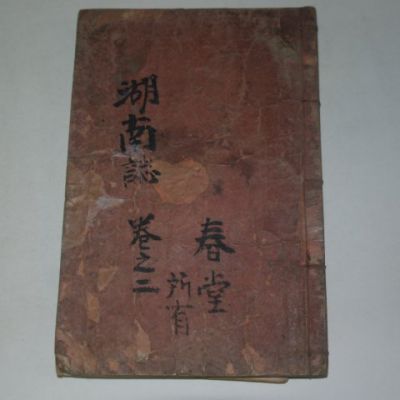 湖南誌 卷之二
春堂
所有